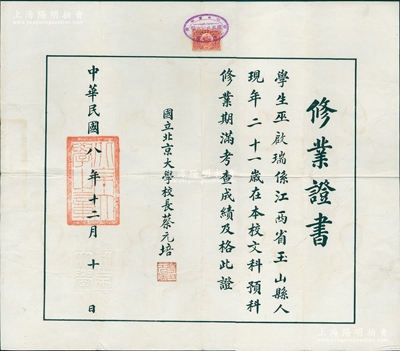 修業證書
學生巫啟瑞係江西省玉山縣人
現年二十一歲在本校文科預科
修業期滿考查成績及格此證
國立北京大學校長蔡元培
中華民國八年十二月十日
上海陽明拍賣